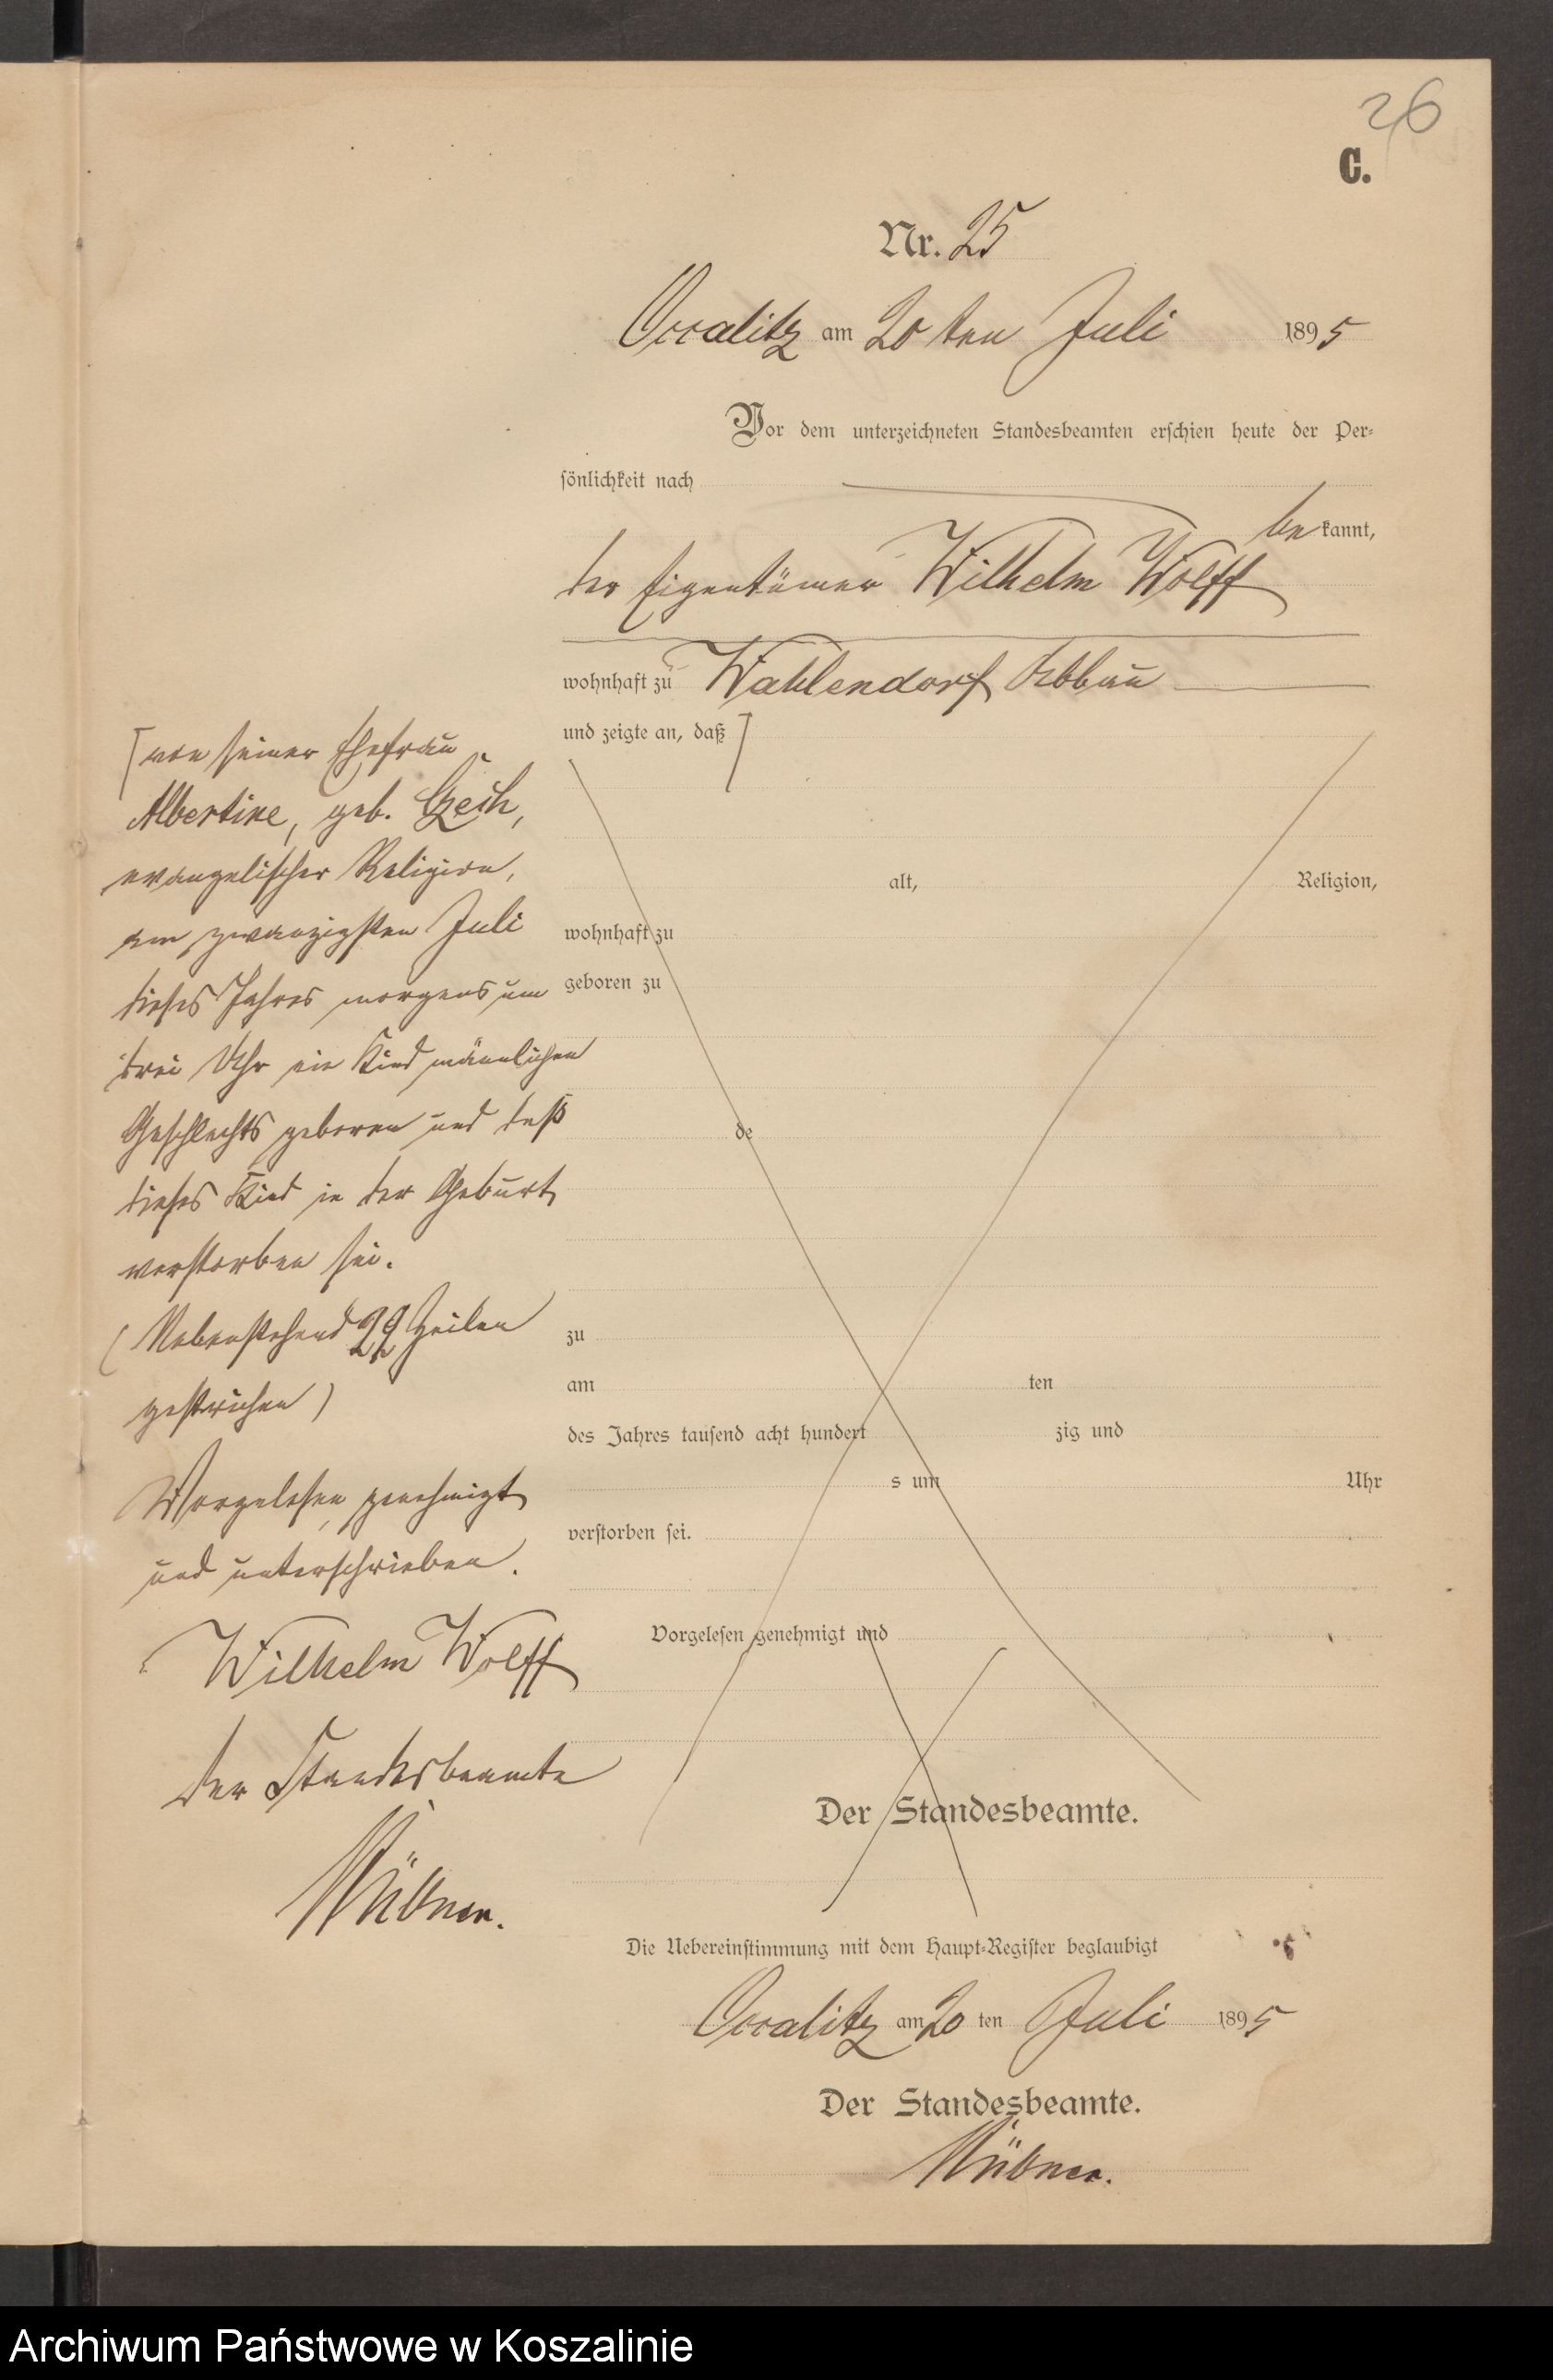 26
C.
Nr. 25
Occalitz am 20 ten Juli 1895
Vor dem unterzeichneten Standesbeamten erschien heute der Per-
sönlichkeit nach
bekannt,
der Eigentümer Wilhelm Wolff
wohnhaft zu Wahlendorf Abbau
und zeigte an, daß]
[von seiner Ehefrau
Albertine, geb. Czech,
evangelischer Religion,
am zwanzigsten Juli
dieses Jahres morgens um
drei Uhr ein Kind männlichen
Geschlechts geboren und daß
dieses Kind in der Geburt
verstorben sei.
(Nebenstehend Zeilen
gestrichen)
Vorgelesen, genehmigt
und unterschrieben.
Wilhelm Wolff
Der Standesbeamte
alt, Religion,
wohnhaft zu
geboren zu
de
zu
am ten
des Jahres tausend acht hundert zig und
s um Uhr
verstorben sei.
Vorgelesen genehmigt und
Der Standesbeamte.
Die Uebereinstimmung mit dem Haupt-Register beglaubigt
Occalitz am 20 ten Juli 1895
Der Standesbeamte.
Archiwum Państwowe w Koszalinie